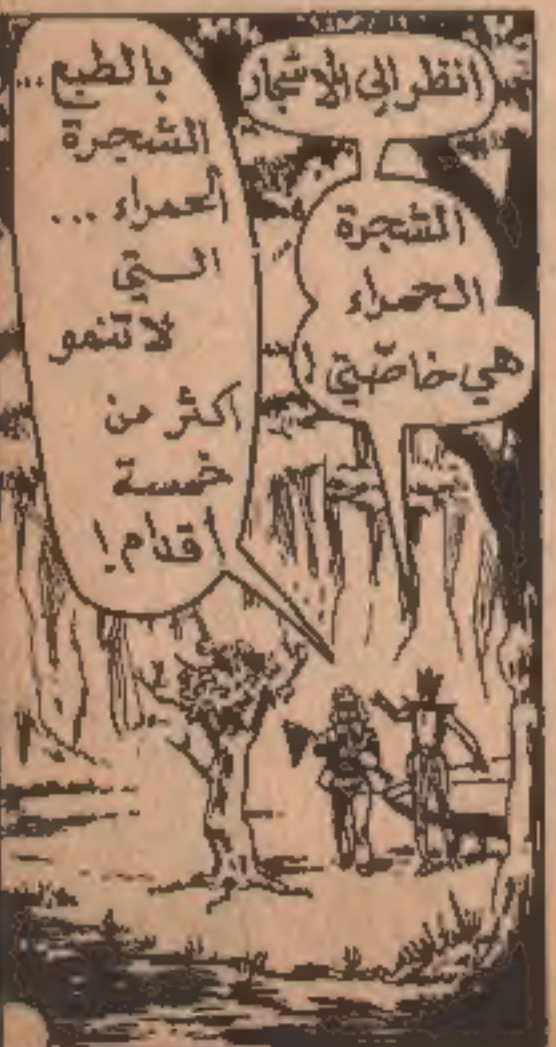 انظر إلى الاشجار
الشجرة
الحمراء
هي خاصّتي !
بالطبع ...
الشجرة
الحمراء ...
التي
لا تنمو
اكثر من
خمسة
أقدام !